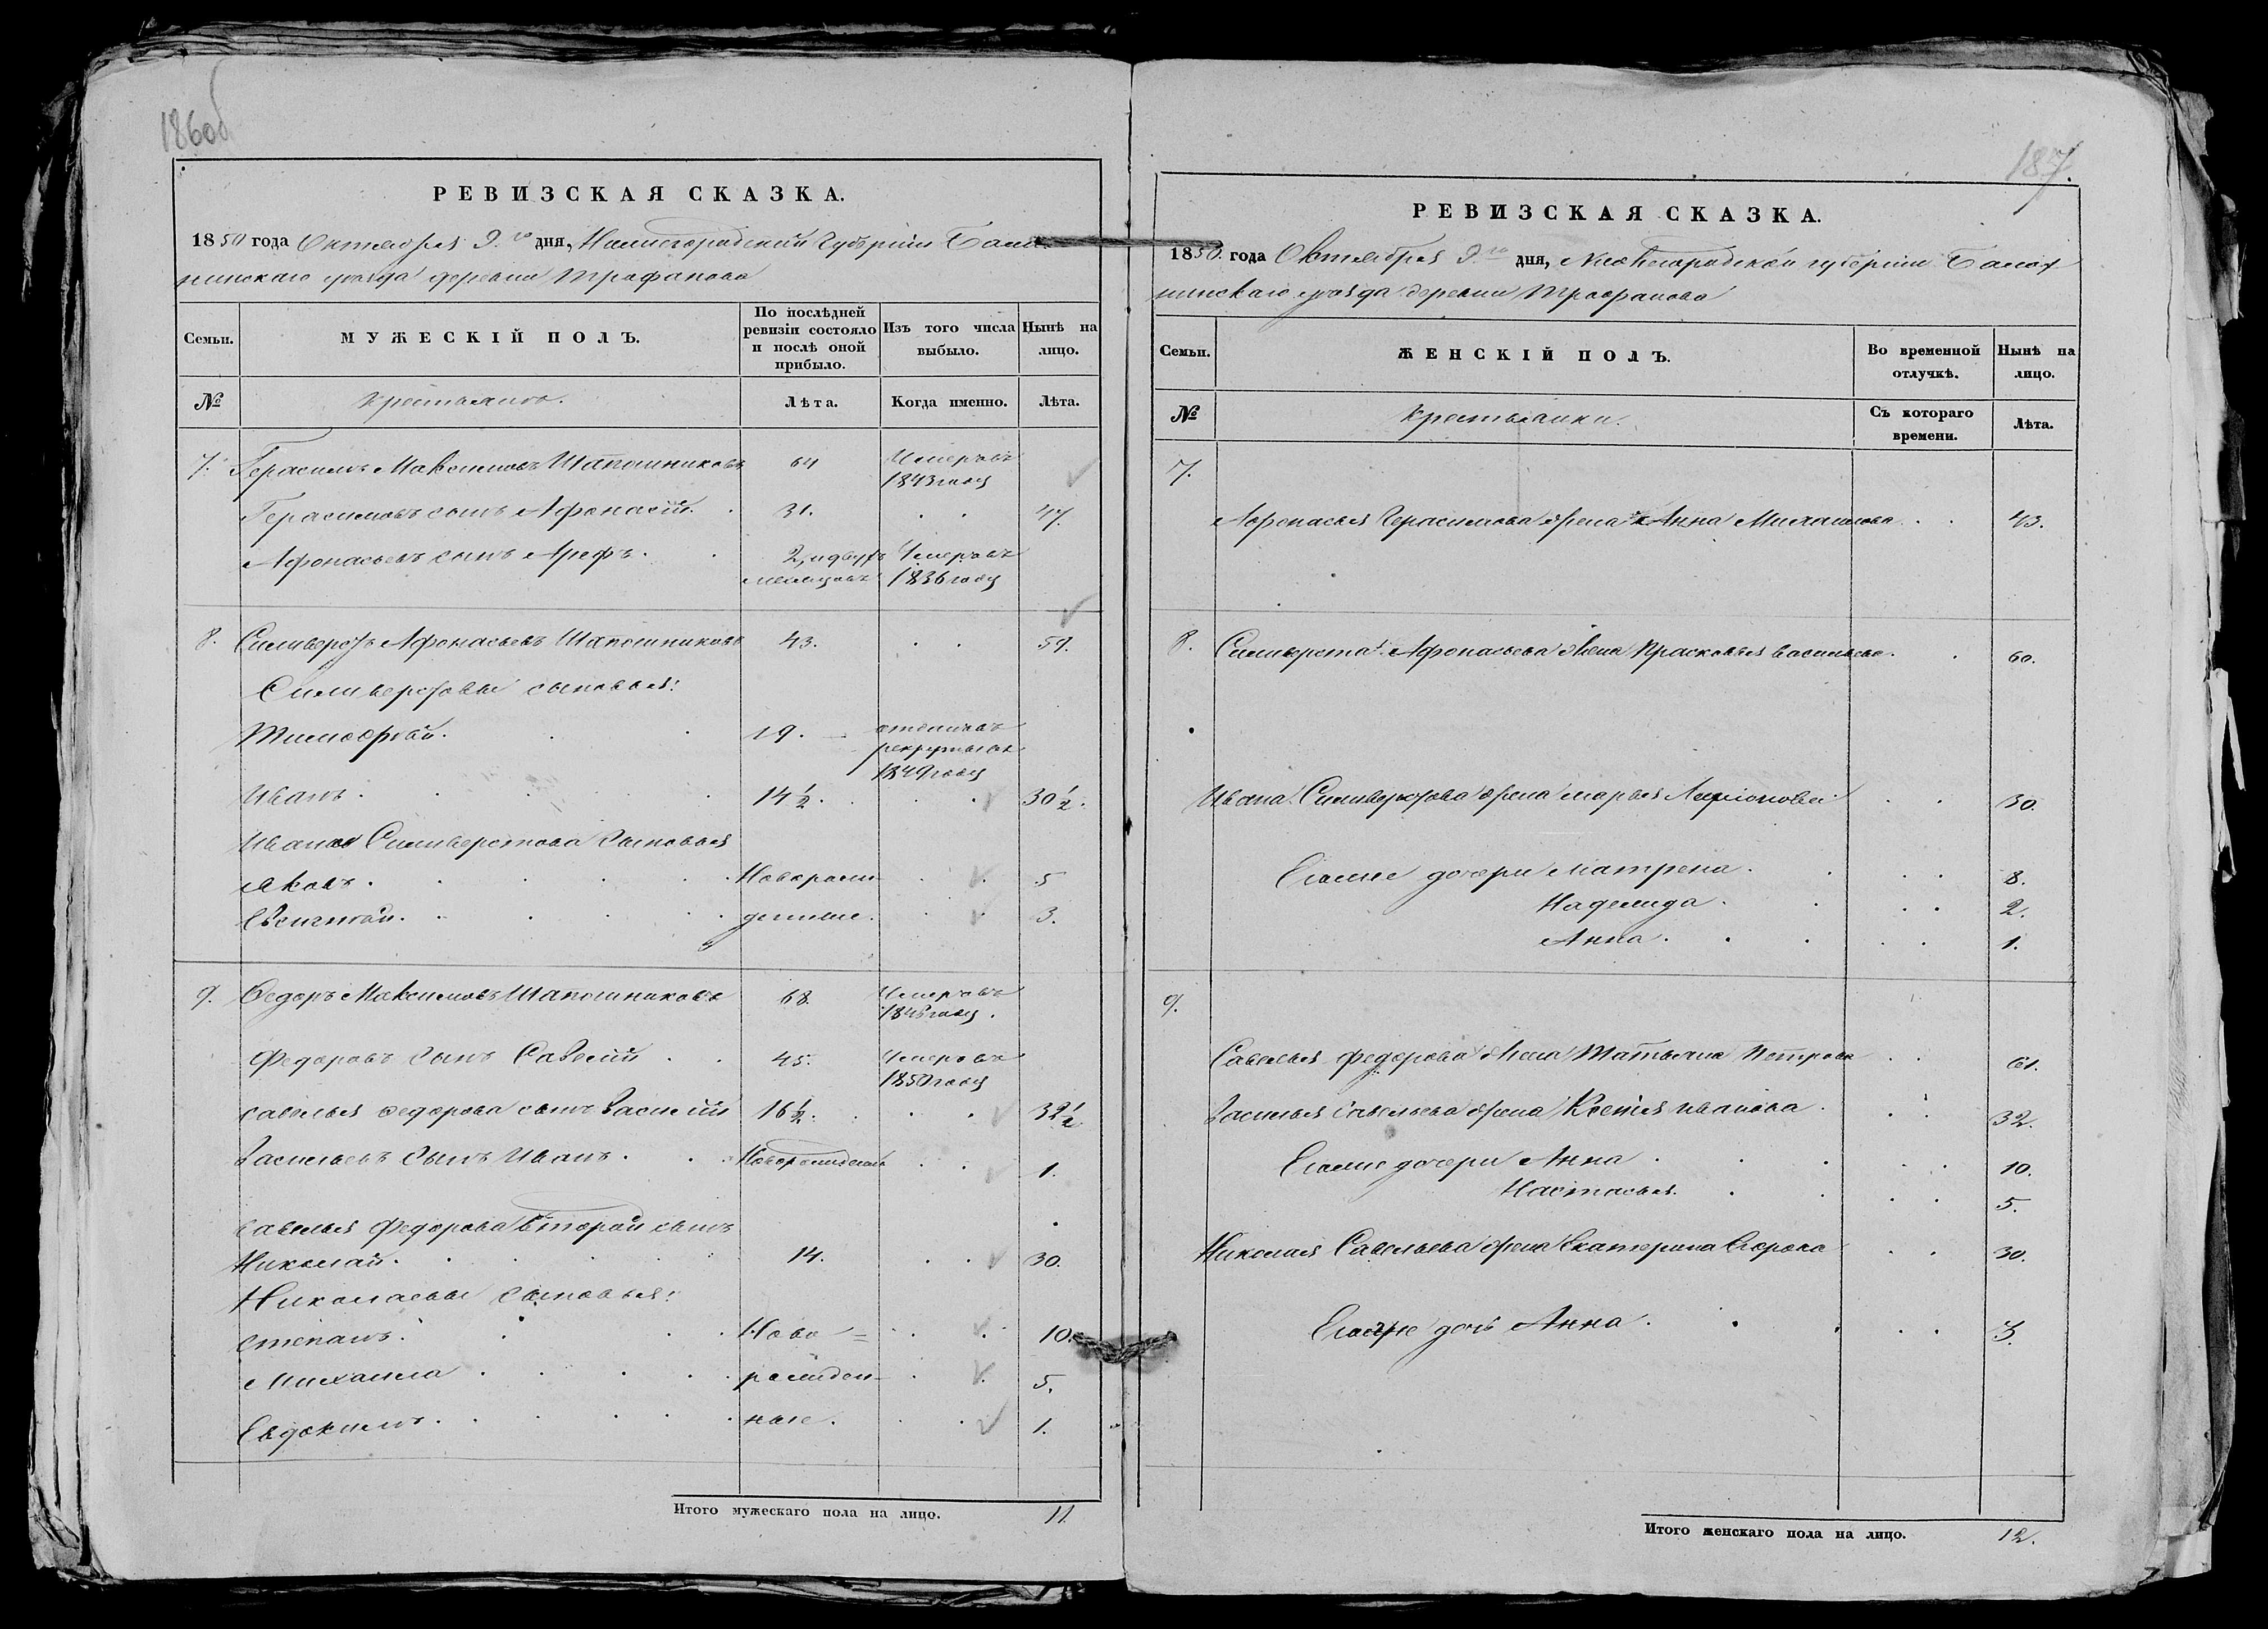 186об
РЕВИЗСКАЯ СКАЗКА.
1850 года Октября 9.го дня, Нижегородской Губернiи Балах
нинскаго уѣзда деревни Трофанова
Семьи.
МУЖЕСКIЙ ПОЛЪ.
По послѣдней ревизiи состояло и послѣ оной прибыло.
Изъ того числа выбыло.
Нынѣ на лицо.
№
Крестьянъ.
Лѣта.
Когда именно.
Лѣта.
7. Герасимъ Максимовъ Шапошниковъ 64 Умеръ въ
1843 году
Герасимовъ сынъ Афонасiй. 31. 47.
Афонасьевъ сынъ Арефъ. 2, и двухъ Умеръ въ
месяцовъ 1836 году
8. Силиверстъ Афонасьевъ Шапошниковъ 43. 59.
Силиверстовы сыновья:
Тимофѣй. 19. отданъ въ
рекруты въ
1849 году
Иванъ. 14 1/2. 30 1/2.
Ивана Силиверстова сыновья
Яковъ. Новорож- 5
Евсигнѣй. денные. 3.
9. Федоръ Максимовъ Шапошниковъ 68. Умеръ въ
1846 году.
Федоровъ сынъ Савелiй 45. Умеръ въ
1850 году
Савелья Федорова сынъ Василiй 16 1/2. 32 1/2
Васильевъ сынъ Иванъ. Новорожденъ 1.
Савелья Федорова второй сынъ
Николай. 14. 30.
Николаевы сыновья:
Степанъ. Ново= 10.
Михаила рожден- 5.
Евдокимъ. ные. 1.
Итого мужескаго пола на лицо. 11.
187.
РЕВИЗСКАЯ СКАЗКА.
1850. года Октября 9.го дня, Нижегородской губернiи Балах
нинскаго уѣзда деревни Трофанова
Семьи.
ЖЕНСКIЙ ПОЛЪ.
Во временной отлучкѣ.
Нынѣ на лицо.
№
Крестьянки.
Съ котораго времени.
Лѣта.
7.
Афонасья Герасимова жена Анна Михаилова 43.
8. Силиверста Афонасьева жена Прасковья Васильева. 60.
Ивана Силиверстова жена Марья Ларионова 30.
Ихъ же дочери Матрена. 8.
Надежда. 2.
Анна. 1.
9.
Савелья Федорова жена Татьяна Петрова 61.
Василья Савельева жена Ксенiя Иванова. 32.
Ихъ же дочери Анна. 10.
Настасья. 5.
Николая Савельева жена Екатерина Егорова 30.
Ихъ же дочь Анна. 3.
Итого женскаго пола на лицо. 12.